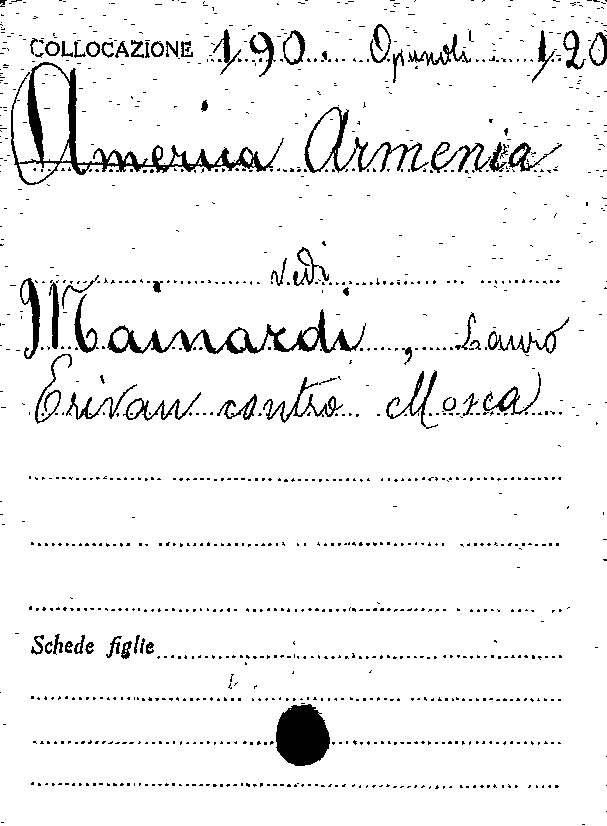 COLLOCAZIONE 190. Opuscoli. 120
America Armenia
vedi
Mainardi, Lauro
Erivan contro Mosca
Schede figlie